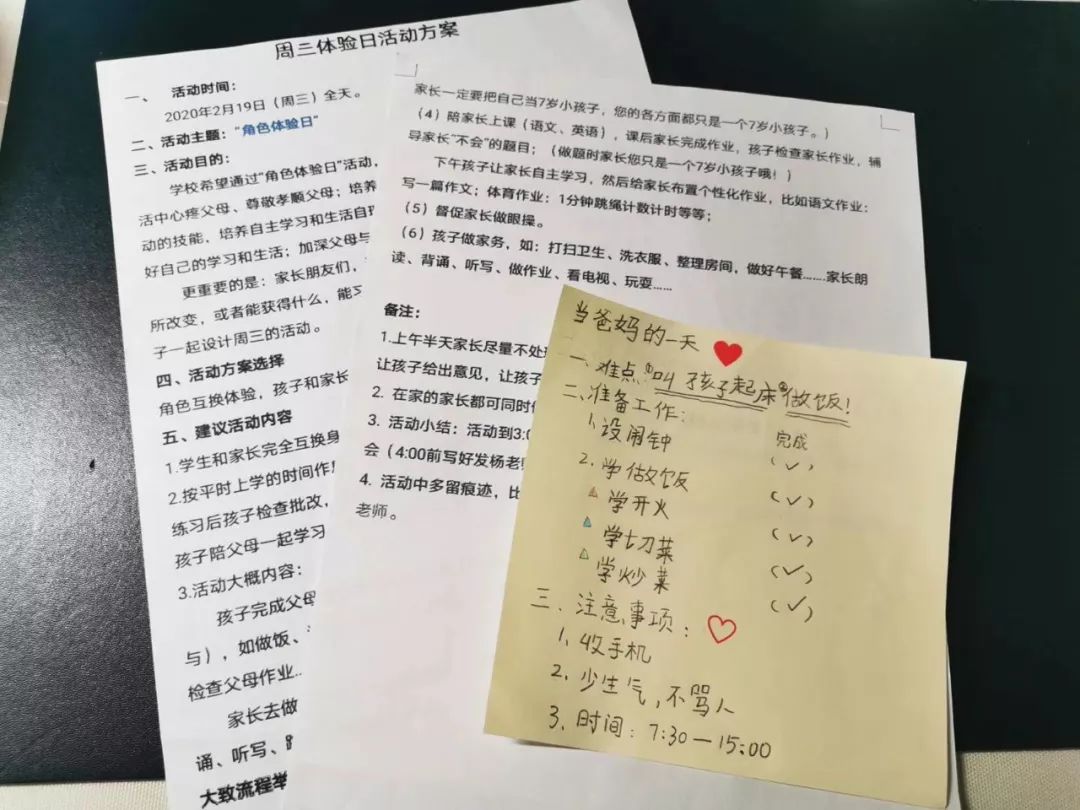 周三体验日活动方案
一、 活动时间：
2020年2月19日（周三）全天。
二、活动主题："角色体验日"
三、活动目的：
学校希望通过"角色体验日"活动，
活中心疼父母、尊敬孝顺父母；培养
动的技能，培养自主学习和生活自
好自己的学习和生活；加深父母与
更重要的是：家长朋友们，
所改变，或者能获得什么，能
子一起设计周三的活动。
四、活动方案选择
角色互换体验，孩子和家长
五、建议活动内容
1.学生和家长完全互换身
2.按平时上学的时间作
练习后孩子检查批改，
孩子陪父母一起学习
3.活动大概内容：
孩子完成父母
与），如做饭、
检查父母作业...
家长去做
诵、听写、
大致流程举
家长一定要把自己当7岁小孩子，您的各方面都只是一个7岁小孩子。）
（4）陪家长上课（语文、英语），课后家长完成作业，孩子检查家长作业，辅
导家长"不会"的题目；（做题时家长您只是一个7岁小孩子哦！）
下午孩子让家长自主学习，然后给家长布置个性化作业，比如语文作业：
写一篇作文；体育作业：1分钟跳绳计数计时等等；
（5）督促家长做眼操。
（6）孩子做家务，如：打扫卫生、洗衣服、整理房间，做好午餐......家长朗
读、背诵、听写、做作业、看电视、玩耍......
备注：
1.上午半天家长尽量不处
让孩子给出意见，让孩子
2. 在家的家长都可同时
3. 活动小结：活动到3:0
会（4:00前写好发杨老
4. 活动中多留痕迹，比
老师。
当爸妈的一天
一、难点①叫孩子起床②做饭！
二、准备工作：
完成
1、设闹钟 （✓）
2、学做饭 （✓）
学开火 （✓）
学切菜 （✓）
学炒菜 （✓）
三、注意事项：
1、收手机
2、少生气，不骂人
3、时间：7:30—15:00